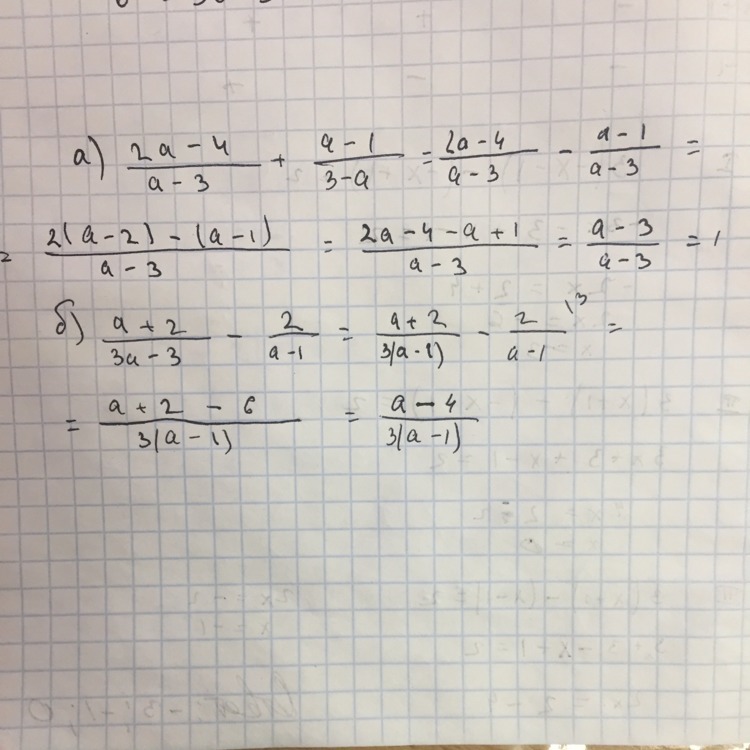 а) (2a - 4)/(a - 3) + (a - 1)/(3 - a) = (2a - 4)/(a - 3) - (a - 1)/(a - 3) =
= (2(a - 2) - (a - 1))/(a - 3) = (2a - 4 - a + 1)/(a - 3) = (a - 3)/(a - 3) = 1
б) (a + 2)/(3a - 3) - 2/(a - 1) = (a + 2)/(3(a - 1)) - 2/(a - 1) \3 =
= (a + 2 - 6)/(3(a - 1)) = (a - 4)/(3(a - 1))